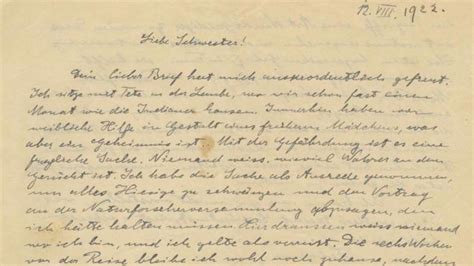 12. VIII. 1922.
Liebe Schwester!
Dein lieber Brief hat mich ausserordentlich gefreut.
Ich sitze mit Tete in der Laube, wo wir schon fast einen
Monat wie die Indianer hausen. Immerhin haben wir
weibliche Hilfe in Gestalt eines früheren Mädchens, was
aber ein Geheimnis ist. Mit der Gefährdung ist es eine
fragliche Sache. Niemand weiss, wieviel Wahres an dem
Gerücht ist. Ich habe die Sache als Ausrede genommen,
um alles Hiesige zu schwänzen und den Vortrag
an der Naturforscherversammlung abzusagen, den
ich hätte halten müssen. Hierdraussen weiss niemand
wo ich bin, und ich gelte als verreist. Die sechs Wochen
vor der Reise bleibe ich wohl doch zuhause, nachdem